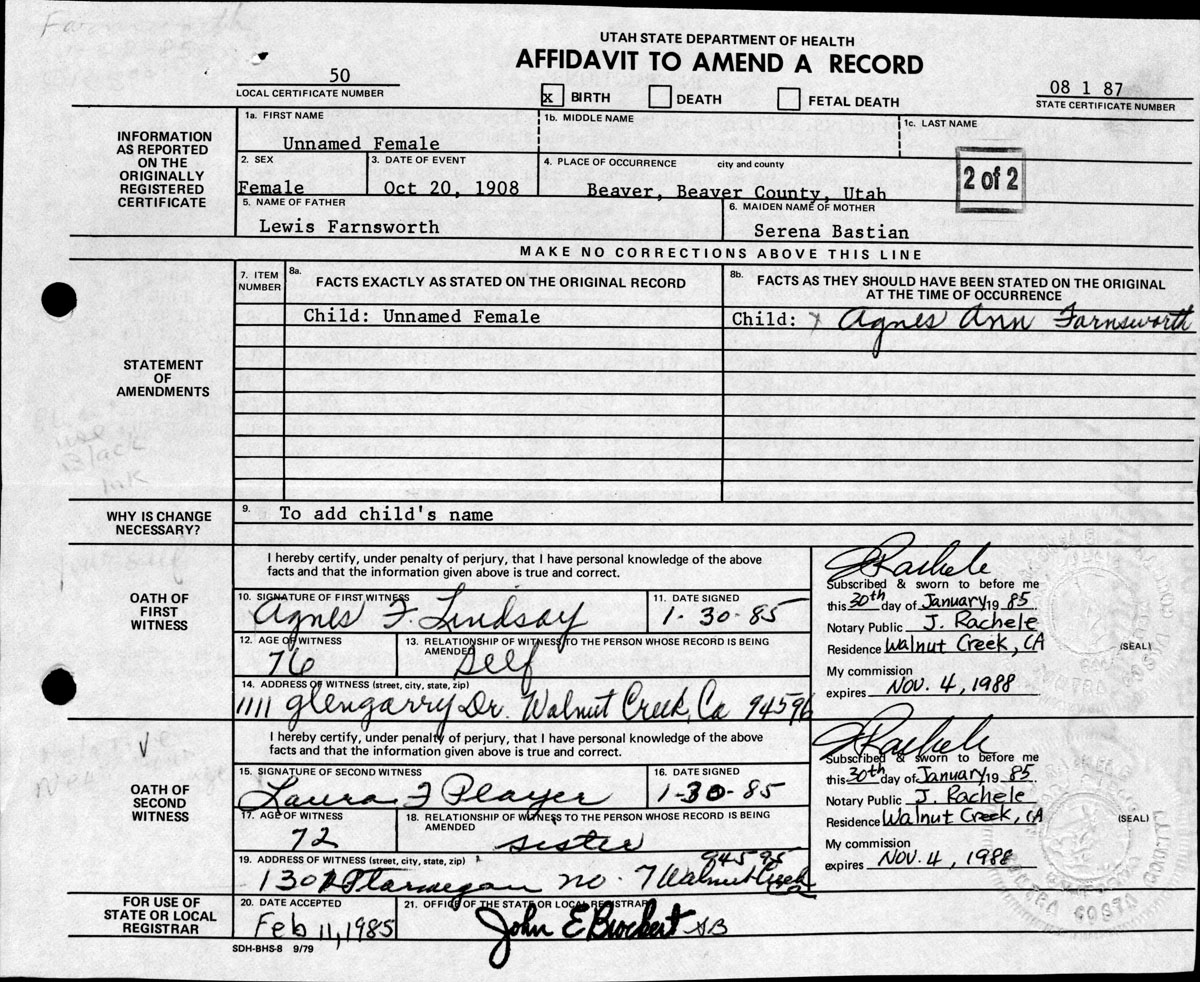 Farnsworth
UTAH STATE DEPARTMENT OF HEALTH
AFFIDAVIT TO AMEND A RECORD
50
LOCAL CERTIFICATE NUMBER
x BIRTH DEATH FETAL DEATH
08 1 87
STATE CERTIFICATE NUMBER
INFORMATION AS REPORTED ON THE ORIGINALLY REGISTERED CERTIFICATE
1a. FIRST NAME 1b. MIDDLE NAME 1c. LAST NAME
Unnamed Female
2. SEX 3. DATE OF EVENT 4. PLACE OF OCCURRENCE city and county
Female Oct 20, 1908 Beaver, Beaver County, Utah
2 of 2
5. NAME OF FATHER 6. MAIDEN NAME OF MOTHER
Lewis Farnsworth Serena Bastian
MAKE NO CORRECTIONS ABOVE THIS LINE
STATEMENT OF AMENDMENTS
7. ITEM NUMBER
8a. FACTS EXACTLY AS STATED ON THE ORIGINAL RECORD
8b. FACTS AS THEY SHOULD HAVE BEEN STATED ON THE ORIGINAL
AT THE TIME OF OCCURRENCE
Child: Unnamed Female Child: x Agnes Ann Farnsworth
use
Black
Ink
WHY IS CHANGE NECESSARY?
9. To add child's name
OATH OF FIRST WITNESS
I hereby certify, under penalty of perjury, that I have personal knowledge of the above
facts and that the information given above is true and correct.
10. SIGNATURE OF FIRST WITNESS 11. DATE SIGNED
Agnes F. Lindsay 1-30-85
12. AGE OF WITNESS 13. RELATIONSHIP OF WITNESS TO THE PERSON WHOSE RECORD IS BEING
AMENDED
76 Self
14. ADDRESS OF WITNESS (street, city, state, zip)
1111 Glengarry Dr. Walnut Creek, Ca 94596
J Rachele
Subscribed & sworn to before me
this 30th day of January 19 85.
Notary Public J. Rachele
Residence Walnut Creek, CA
(SEAL)
My commission
expires Nov. 4, 1988
OATH OF SECOND WITNESS
I hereby certify, under penalty of perjury, that I have personal knowledge of the above
facts and that the information given above is true and correct.
15. SIGNATURE OF SECOND WITNESS 16. DATE SIGNED
Laura F Player 1-30-85
17. AGE OF WITNESS 18. RELATIONSHIP OF WITNESS TO THE PERSON WHOSE RECORD IS BEING
AMENDED
72 sister
19. ADDRESS OF WITNESS (street, city, state, zip)
94595
Ptarmegan no. 7 Walnut Creek
J Rachele
Subscribed & sworn to before me
this 30th day of January 19 85.
Notary Public J. Rachele
Residence Walnut Creek, CA
(SEAL)
My commission
expires Nov. 4, 1988
FOR USE OF STATE OR LOCAL REGISTRAR
20. DATE ACCEPTED 21. OFFICE OF THE STATE OR LOCAL REGISTRAR
Feb 11, 1985 John E Brockert
SDH-BHS-8 9/79